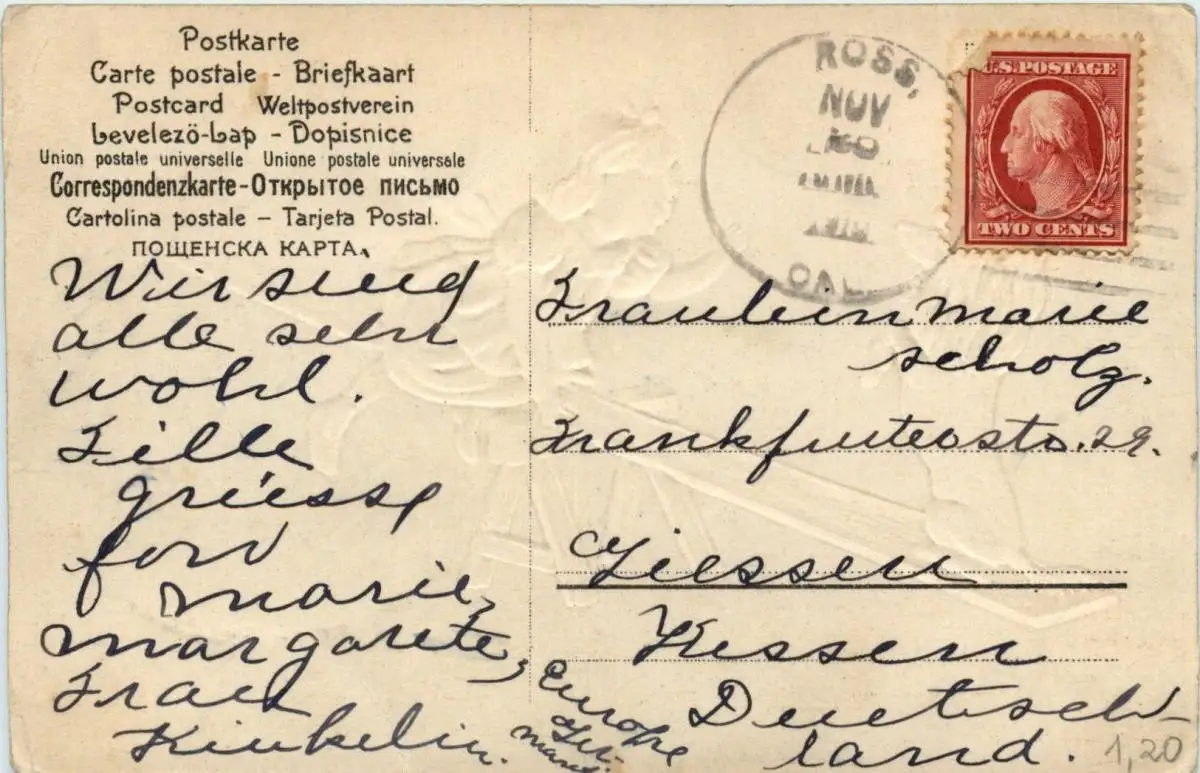 Postkarte
Carte postale - Briefkaart
Postcard Weltpostverein
Levelezö-Lap - Dopisnice
Union postale universelle Unione postale universale
Correspondenzkarte - Открытое письмо
Cartolina postale - Tarjeta Postal.
ПОЩЕНСКА КАРТА.
Wir sind
alle sehr
wohl.
Fille
grüsse
fon
Marie,
Margarete,
Frau
Kinkelin.
ROSS,
NOV
CAL.
U.S. POSTAGE
TWO CENTS
Fraulein Marie
Scholz.
Frankfurterstr. 29.
Giessen
Hessen
Duetsch-
land.
Europe
Ger-
many.
1,20